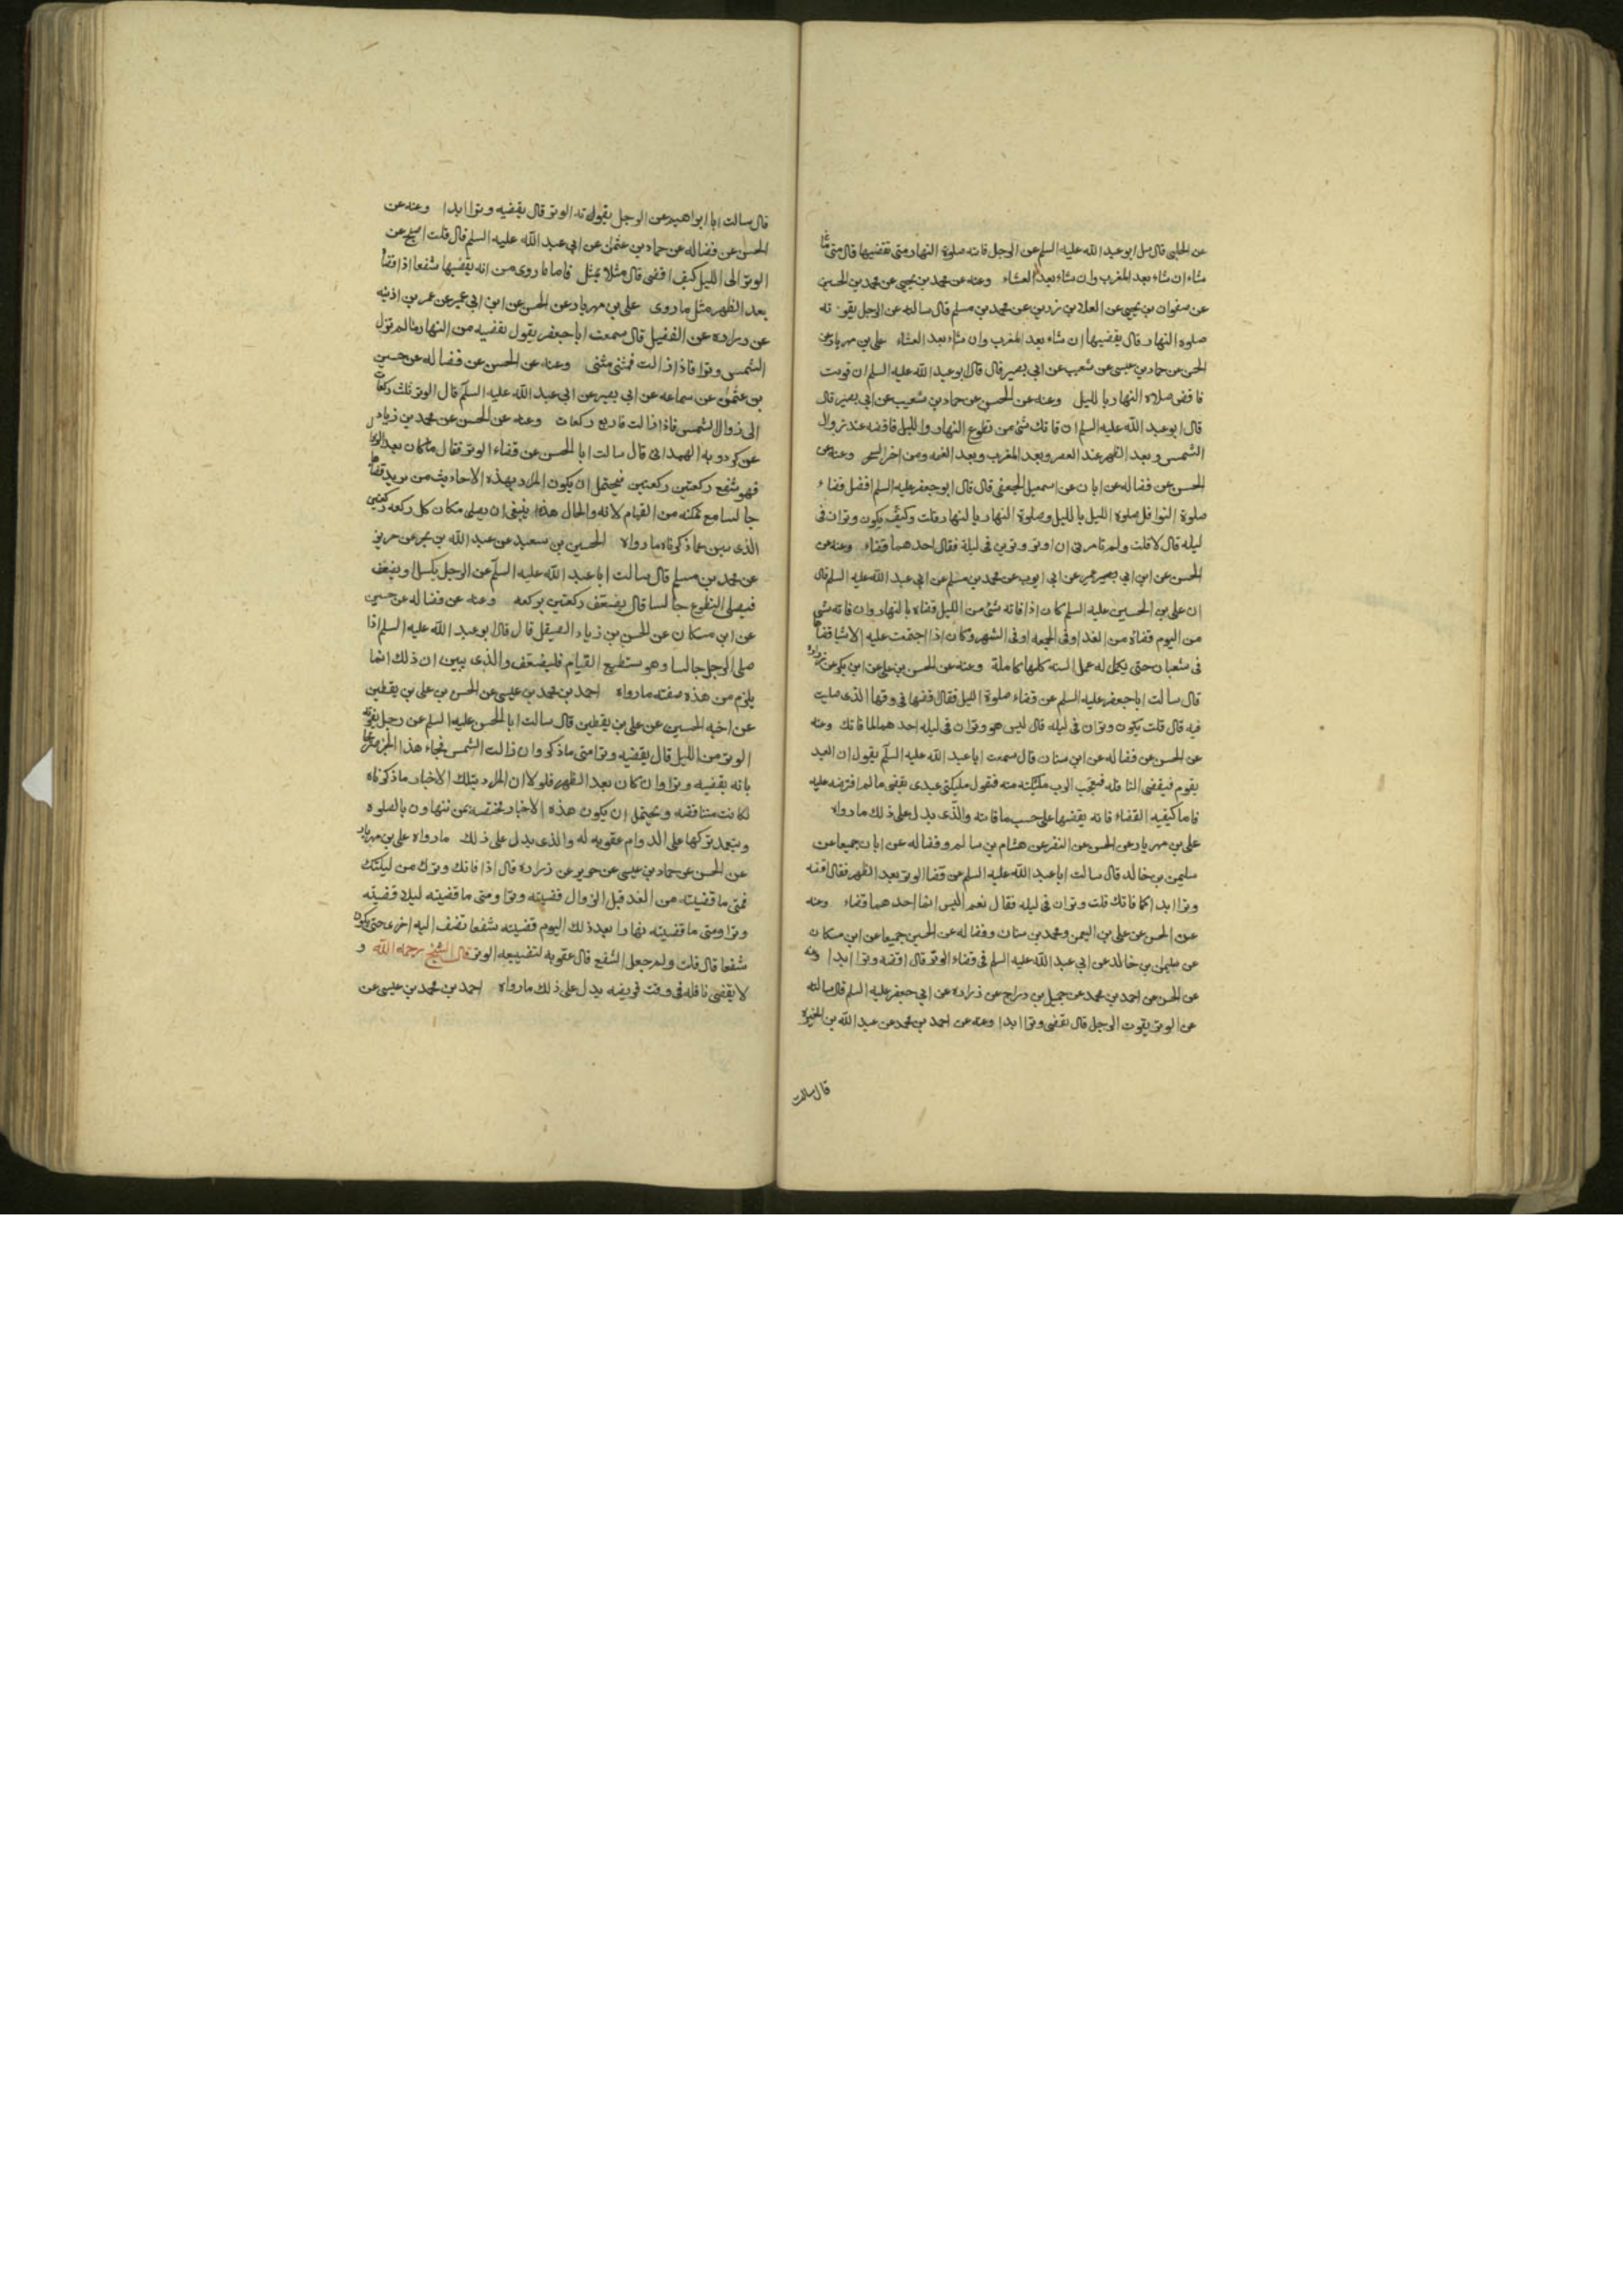 عن الحلبى قال سل ابو عبد الله عليه السلم عن الرجل فاته صلوة النهار متى تقضيها قال متى ما
شاء ان شاء بعد المغرب وان شاء بعد العشاء وعنه عن محمد بن يحيى عن محمد بن الحسين
عن صفوان بن يحيى عن العلا بن زرين عن محمد بن مسلم قال سالته عن الرجل يفوته
صلوة النهار قال يقضيها ان شاء بعد المغرب وان شاء بعد العشاء على بن مهزيار عن
الحسن عن حماد بن عيسى عن شعيب عن ابى بصير قال قال ابو عبد الله عليه السلم ان قويت
فاقض صلاة النهار بالليل وعنه عن الحسن عن حماد بن شعيب عن ابى بصير قال
قال ابو عبد الله عليه السلم ان فاتك شئ من تطوع النهار والليل فاقضه عند زوال
الشمس وبعد الظهر عند العصر وبعد المغرب وبعد العتمه ومن اخر السحر وعنه عن
الحسن عن فضاله عن ابان عن اسمعيل الجعفى قال قال ابو جعفر عليه السلم افضل قضاء
صلوة النوافل صلوة الليل بالليل وصلوة النهار بالنهار قلت وكيف يكون وتران فى
ليله قال لا قلت ولم تامرنى ان اوتر وترين فى ليلة فقال احدهما قضاء وعنه عن
الحسن عن ابن ابى عمير عن ابى ايوب عن محمد بن مسلم عن ابى عبد الله عليه السلم قال
ان على بن الحسين عليه السلم كان اذا فاته شئ من الليل قضاه بالنهار وان فاته شئ
من اليوم قضاه من الغد او فى الجمعه او فى الشهر وكان اذا اجتمعت عليه الاشيا قضاها
فى شعبان حتى يكمل له عمل السنه كلها كاملة وعنه عن الحسن بن على عن ابن بكير عن زرارة
قال سالت ابا جعفر عليه السلم عن قضاء صلوة الليل فقال اقضها فى وقتها الذى صليت
فيه قال قلت يكون وتران فى ليله قال ليس هو وتران فى ليله احدهما لما فاتك وعنه
عن الحسن عن فضاله عن ابن سنان قال سمعت ابا عبد الله عليه السلم يقول ان العبد
يقوم فيقضى النافله فيعجب الرب ملئكته منه فيقول ملئكتى عبدى يقضى ما لم افترضه عليه
فاما كيفيه القضاء فانه يقضيها على حسب ما فاته والذى يدل على ذلك ما رواه
على بن مهزيار عن الحسن عن النضر عن هشام بن سالم وفضاله عن ابان جميعا عن
سليمن بن خالد قال سالت ابا عبد الله عليه السلم عن قضا الوتر بعد الظهر فقال اقضه
وترا ابدا كما فاتك قلت وتران فى ليله فقال نعم اليس انما احدهما قضاء وعنه
عن الحسن عن على بن اليمن ومحمد بن سنان وفضاله عن الحسين جميعا عن ابن مسكان
عن سليمان بن خالد عن ابى عبد الله عليه السلم فى قضاء الوتر قال اقضه وترا ابدا وعنه
عن الحسن عن احمد بن محمد عن جميل بن دراج عن زراره عن ابى جعفر عليه السلم قال سالته
عن الوتر يفوت الرجل قال يقضى وترا ابدا وعنه عن احمد بن محمد عن عبد الله بن المغيرة
قال سالت
قال سالت ابا ابراهيم عن الرجل يفوته الوتر قال يقضيه وترا ابدا وعنه عن
الحسن عن فضاله عن حماد بن عثمن عن ابى عبد الله عليه السلم قال قلت اصبح عن
الوتر الى الليل كيف اقضى قال مثلا بمثل فاما ما روى من انه يقضيها شفعا اذا قضاها
بعد الظهر مثل ما روى على بن مهزيار عن الحسن عن ابن ابى عمير عن عمر بن اذينه
عن زراره عن الفضيل قال سمعت ابا جعفر يقول يقضيه من النهار ما لم تزل
الشمس وترا فاذا زالت فمثنى مثنى وعنه عن الحسن عن فضاله عن حسين
بن عثمن عن سماعه عن ابى بصير عن ابى عبد الله عليه السلم قال الوتر ثلث ركعات
الى زوال الشمس فاذا زالت فاربع ركعات وعنه عن الحسن عن محمد بن زياد
عن كردويه الهمدانى قال سالت ابا الحسن عن قضاء الوتر فقال ما كان بعد الزوال
فهو شفع ركعتين ركعتين فيحتمل ان يكون المراد بهذه الاحاديث من يريد قضاها
جالسا مع تمكنه من القيام لانه والحال هذه ينبغى ان يصلى مكان كل ركعه ركعتين
الذى يبين عما ذكرناه ما رواه الحسين بن سعيد عن عبد الله بن بحر عن حريز
عن محمد بن مسلم قال سالت ابا عبد الله عليه السلم عن الرجل يكسل او يضعف
فيصلى التطوع جالسا قال يضعف ركعتين بركعه وعنه عن فضاله عن حسين
عن ابن مسكان عن الحسن بن زياد الصيقل قال قال ابو عبد الله عليه السلم اذا
صلى الرجل جالسا وهو يستطيع القيام فليضعف والذى يبين ان ذلك انما
يلزم من هذه صفته ما رواه احمد بن محمد بن عيسى عن الحسن بن على بن يقطين
عن اخيه الحسين عن على بن يقطين قال سالت ابا الحسن عليه السلم عن رجل يفوته
الوتر من الليل قال يقضيه وترا متى ما ذكر وان زالت الشمس فجاء هذا الخبر مصرحا
بانه يقضيه وترا وان كان بعد الظهر فلولا ان المراد بتلك الاخبار ما ذكرناه
لكانت متناقضه ويحتمل ان يكون هذه الاخبار مختصه بمن تتهاون بالصلوه
ويتعمد تركها على الدوام عقوبه له والذى يدل على ذلك ما رواه على بن مهزيار
عن الحسن عن حماد بن عيسى عن حريز عن زراره قال اذا فاتك وترك من ليلتك
فمتى ما قضيته من الغد قبل الزوال قضيته وترا ومتى ما قضيته ليلا قضيته
وترا ومتى ما قضيته نهارا بعد ذلك اليوم قضيته شفعا تضف اليه اخرى حتى يكون
شفعا قال قلت ولم جعل الشفع قال عقوبه لتضييعه الوتر قال الشيخ رحمه الله و
لا يقضى نافله فى وقت فريضه يدل على ذلك ما رواه احمد بن محمد بن عيسى عن